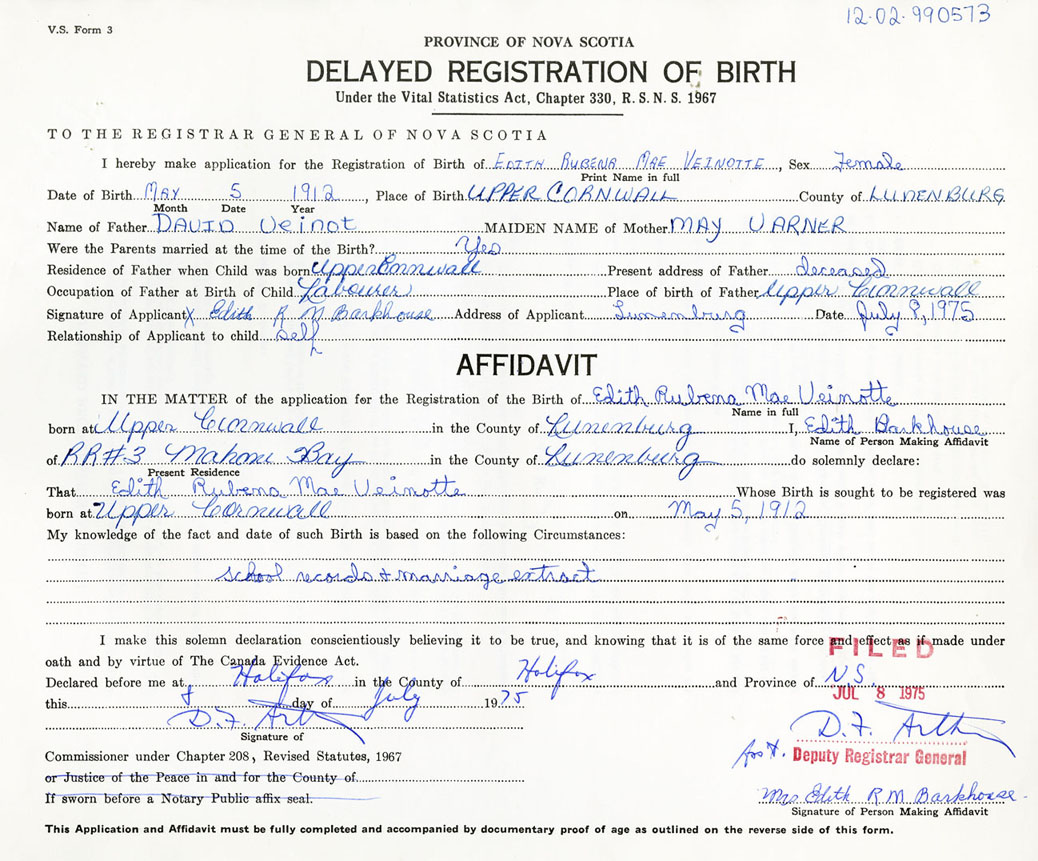 12-02-990573
V.S. Form 3
PROVINCE OF NOVA SCOTIA
DELAYED REGISTRATION OF BIRTH
Under the Vital Statistics Act, Chapter 330, R.S.N.S. 1967
TO THE REGISTRAR GENERAL OF NOVA SCOTIA
I hereby make application for the Registration of Birth of EDITH RUBENA MAE VEINOTTE, Sex Female
Print Name in full
Date of Birth MAY 5 1912, Place of Birth UPPER CORNWALL County of LUNENBURG
Month Date Year
Name of Father DAVID Veinot MAIDEN NAME of Mother MAY VARNER
Were the Parents married at the time of the Birth? Yes
Residence of Father when Child was born Upper Cornwall Present address of Father deceased
Occupation of Father at Birth of Child Labourer Place of birth of Father Upper Cornwall
Signature of Applicant X Edith R M Barkhouse Address of Applicant Lunenburg Date July 8, 1975
Relationship of Applicant to child self
AFFIDAVIT
IN THE MATTER of the application for the Registration of the Birth of Edith Rubena Mae Veinotte
Name in full
born at Upper Cornwall in the County of Lunenburg I, Edith Barkhouse
Name of Person Making Affidavit
of RR#3 Mahone Bay in the County of Lunenburg do solemnly declare:
Present Residence
That Edith Rubena Mae Veinotte Whose Birth is sought to be registered was
born at Upper Cornwall on May 5, 1912
My knowledge of the fact and date of such Birth is based on the following Circumstances:
school records & marriage extract
I make this solemn declaration conscientiously believing it to be true, and knowing that it is of the same force and effect as if made under
FILED
oath and by virtue of The Canada Evidence Act.
Declared before me at Halifax in the County of Halifax and Province of N.S.
JUL 8 1975
this 8 day of July 1975
D.F. Arth
D.F. Arth
Signature of
for H. Deputy Registrar General
Commissioner under Chapter 208, Revised Statutes, 1967
or Justice of the Peace in and for the County of
If sworn before a Notary Public affix seal.
Mrs Edith R M Barkhouse
Signature of Person Making Affidavit
This Application and Affidavit must be fully completed and accompanied by documentary proof of age as outlined on the reverse side of this form.